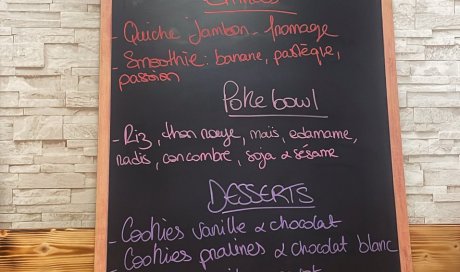 - Quiche jambon - fromage
- Smoothie : banane, pastèque,
passion
Poke bowl
- Riz, thon rouge, maïs, edamame,
radis, concombre, soja & sésame
DESSERTS
- Cookies vanille & chocolat
- Cookies pralines & chocolat blanc